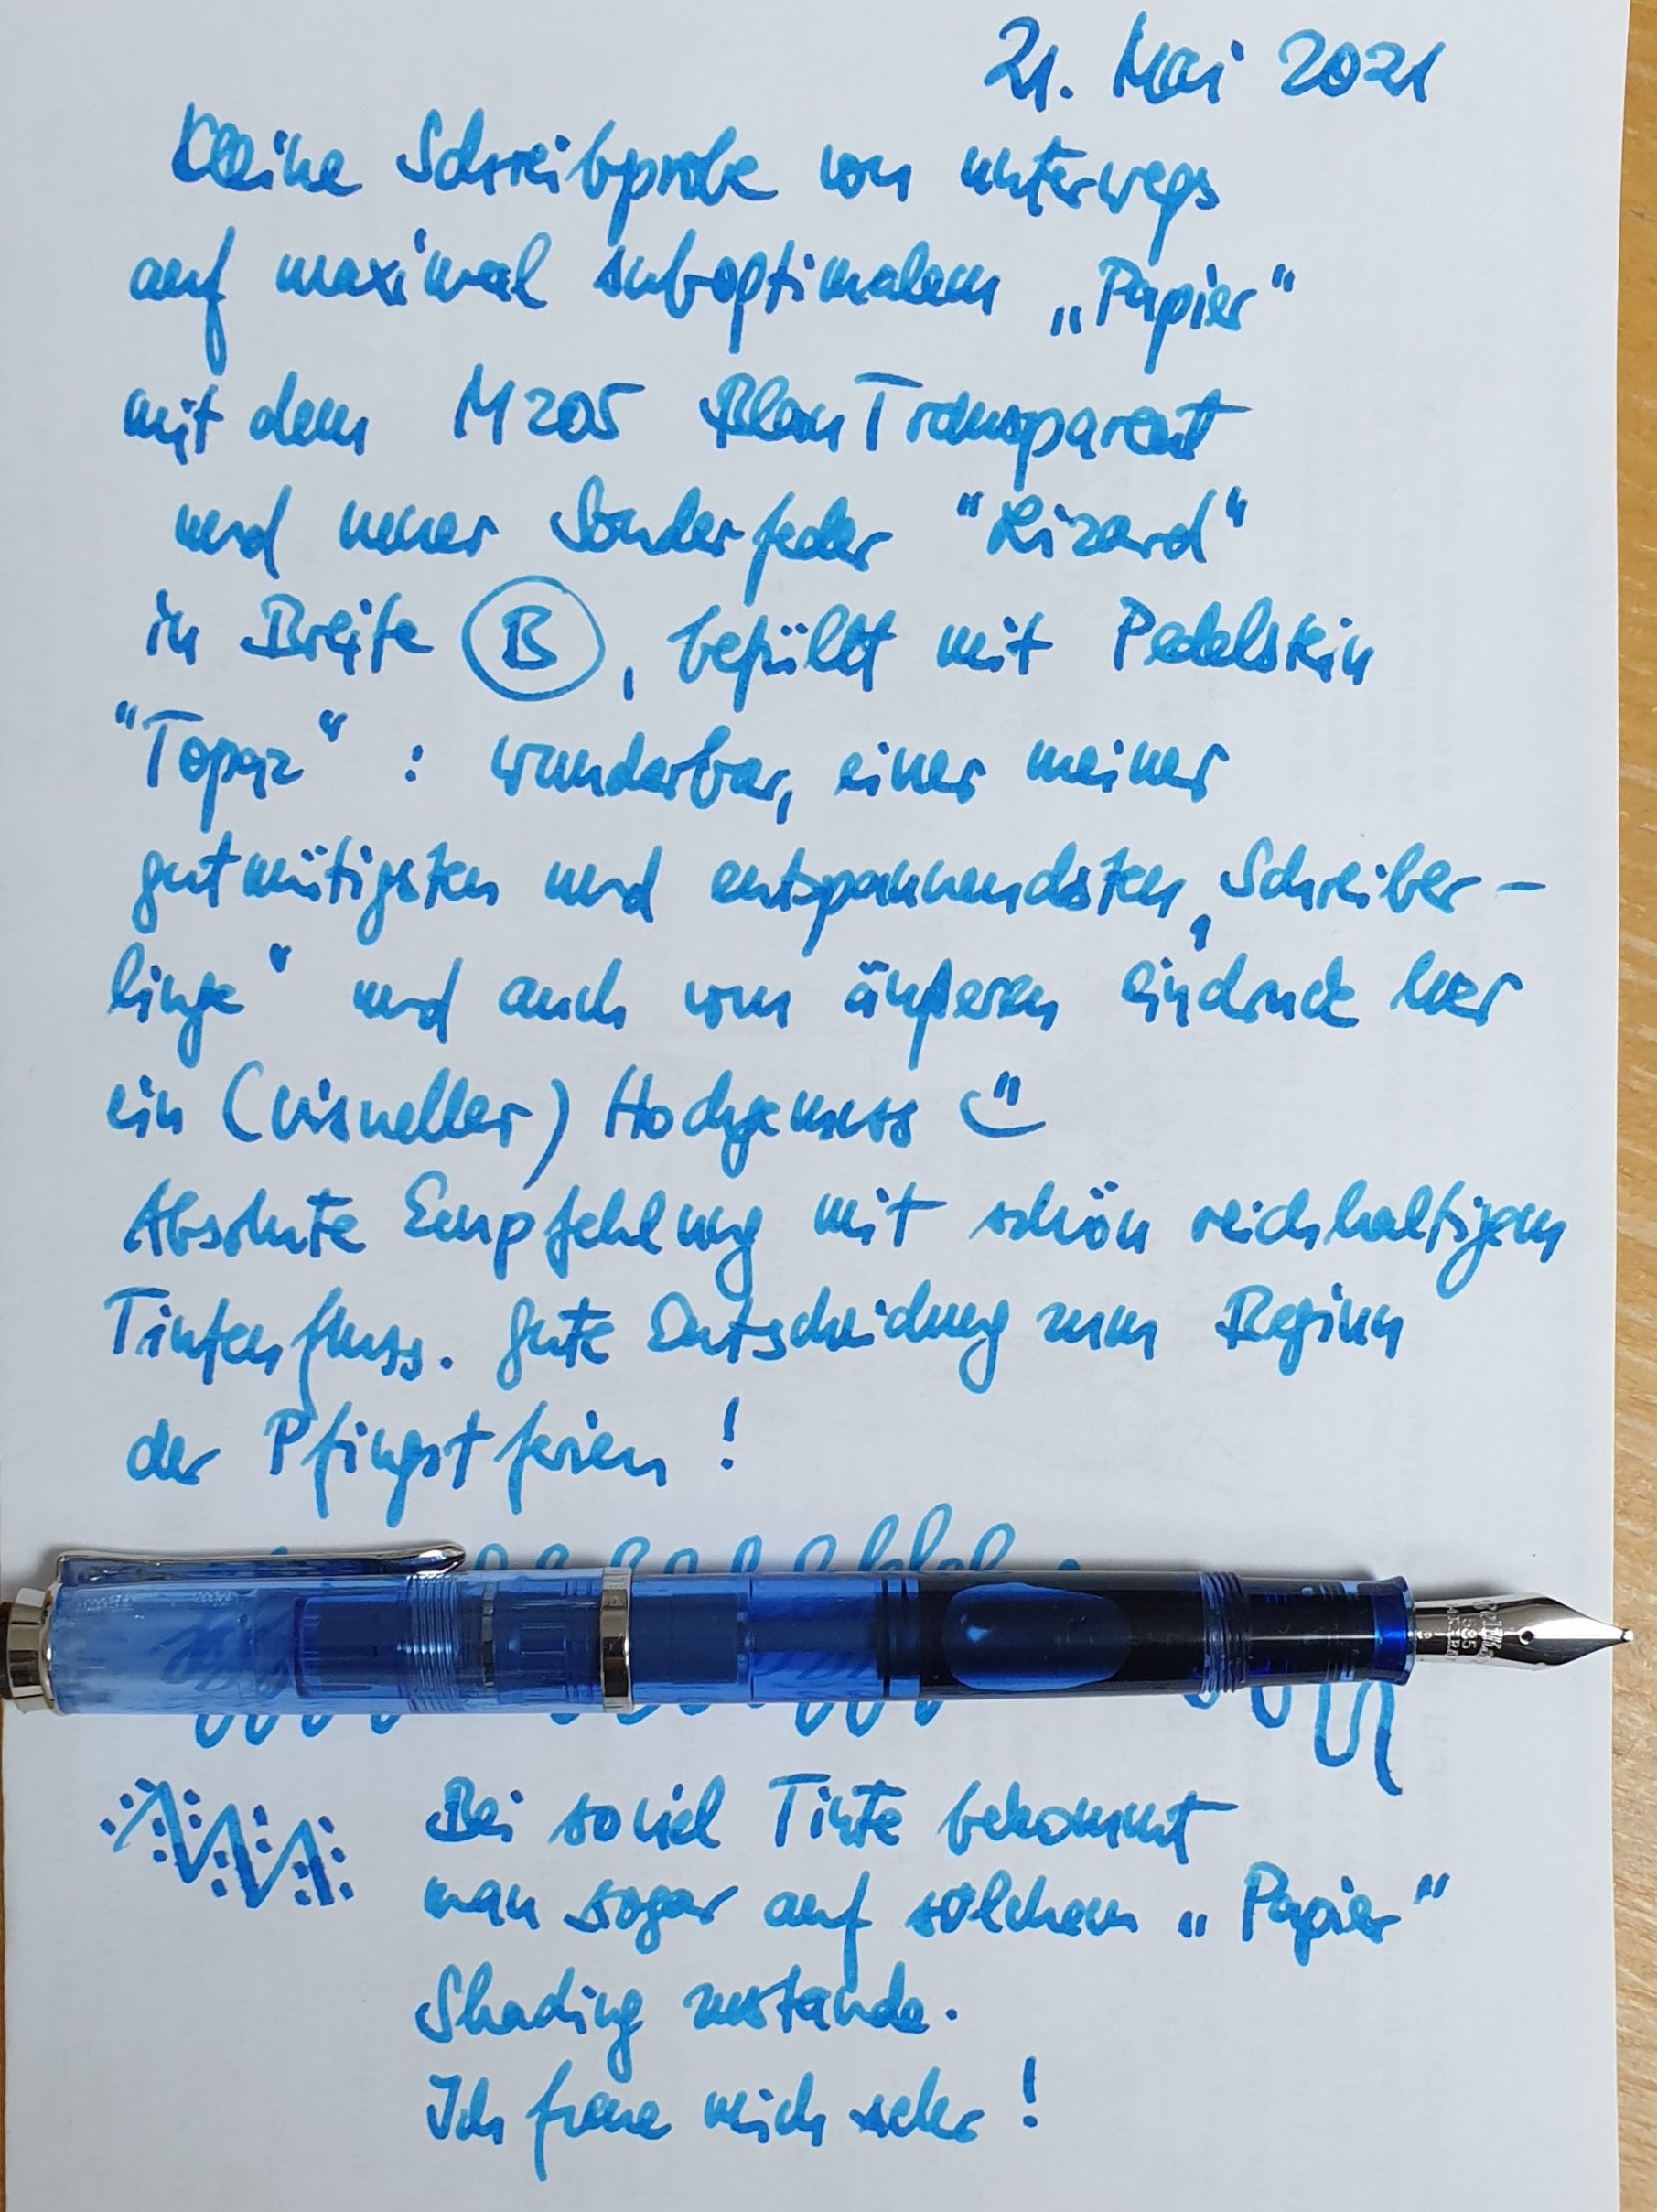 21. Mai 2021
Kleine Schreibprobe von unterwegs
auf maximal suboptimalem „Papier“
mit dem M205 Blau Transparent
und neuer Sonderfeder "Lizard"
in Breite B, befüllt mit Pedelstein
"Topaz" : wunderbar, einer meiner
gutmütigsten und entspannendsten „Schreiber-
linge“ und auch vom äußeren Eindruck her
ein (visueller) Hochgenuss
Absolute Empfehlung mit schön reichhaltigem
Tintenfluss. Gute Entscheidung zum Beginn
der Pfingstferien !
585
Bei soviel Tinte bekommt
man sogar auf solchem „Papier“
Shading zustande.
Ich freue mich sehr !